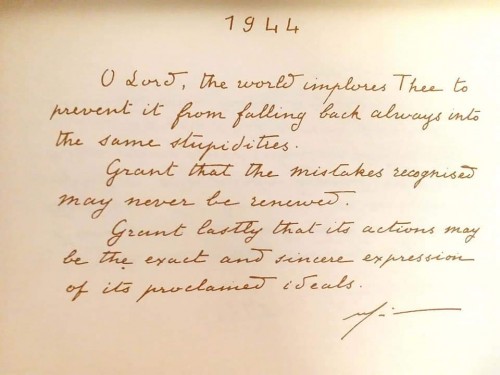 1944
O Lord, the world implores Thee to
prevent it from falling back always into
the same stupidities.
Grant that the mistakes recognised
may never be renewed.
Grant lastly that its actions may
be the exact and sincere expression
of its proclaimed ideals.